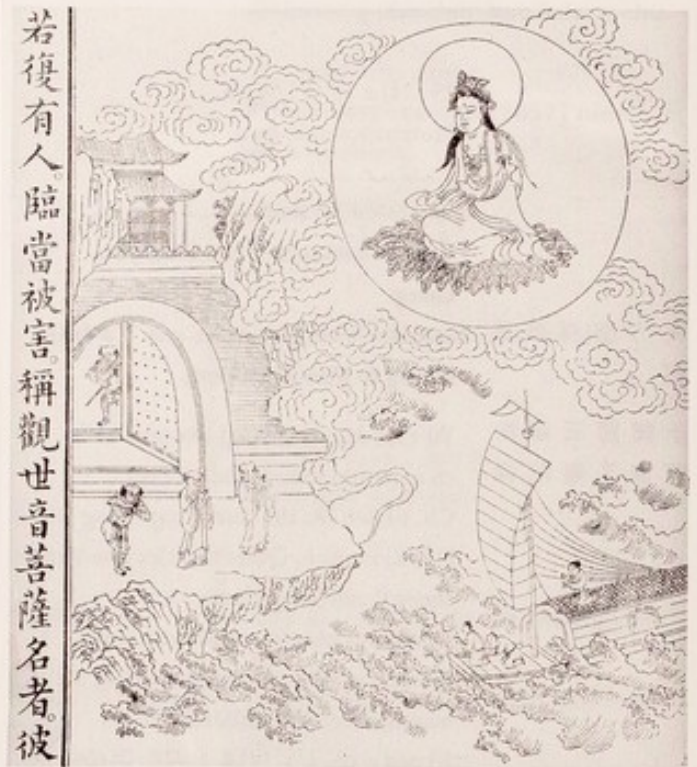 若復有人。臨當被害。稱觀世音菩薩名者。彼